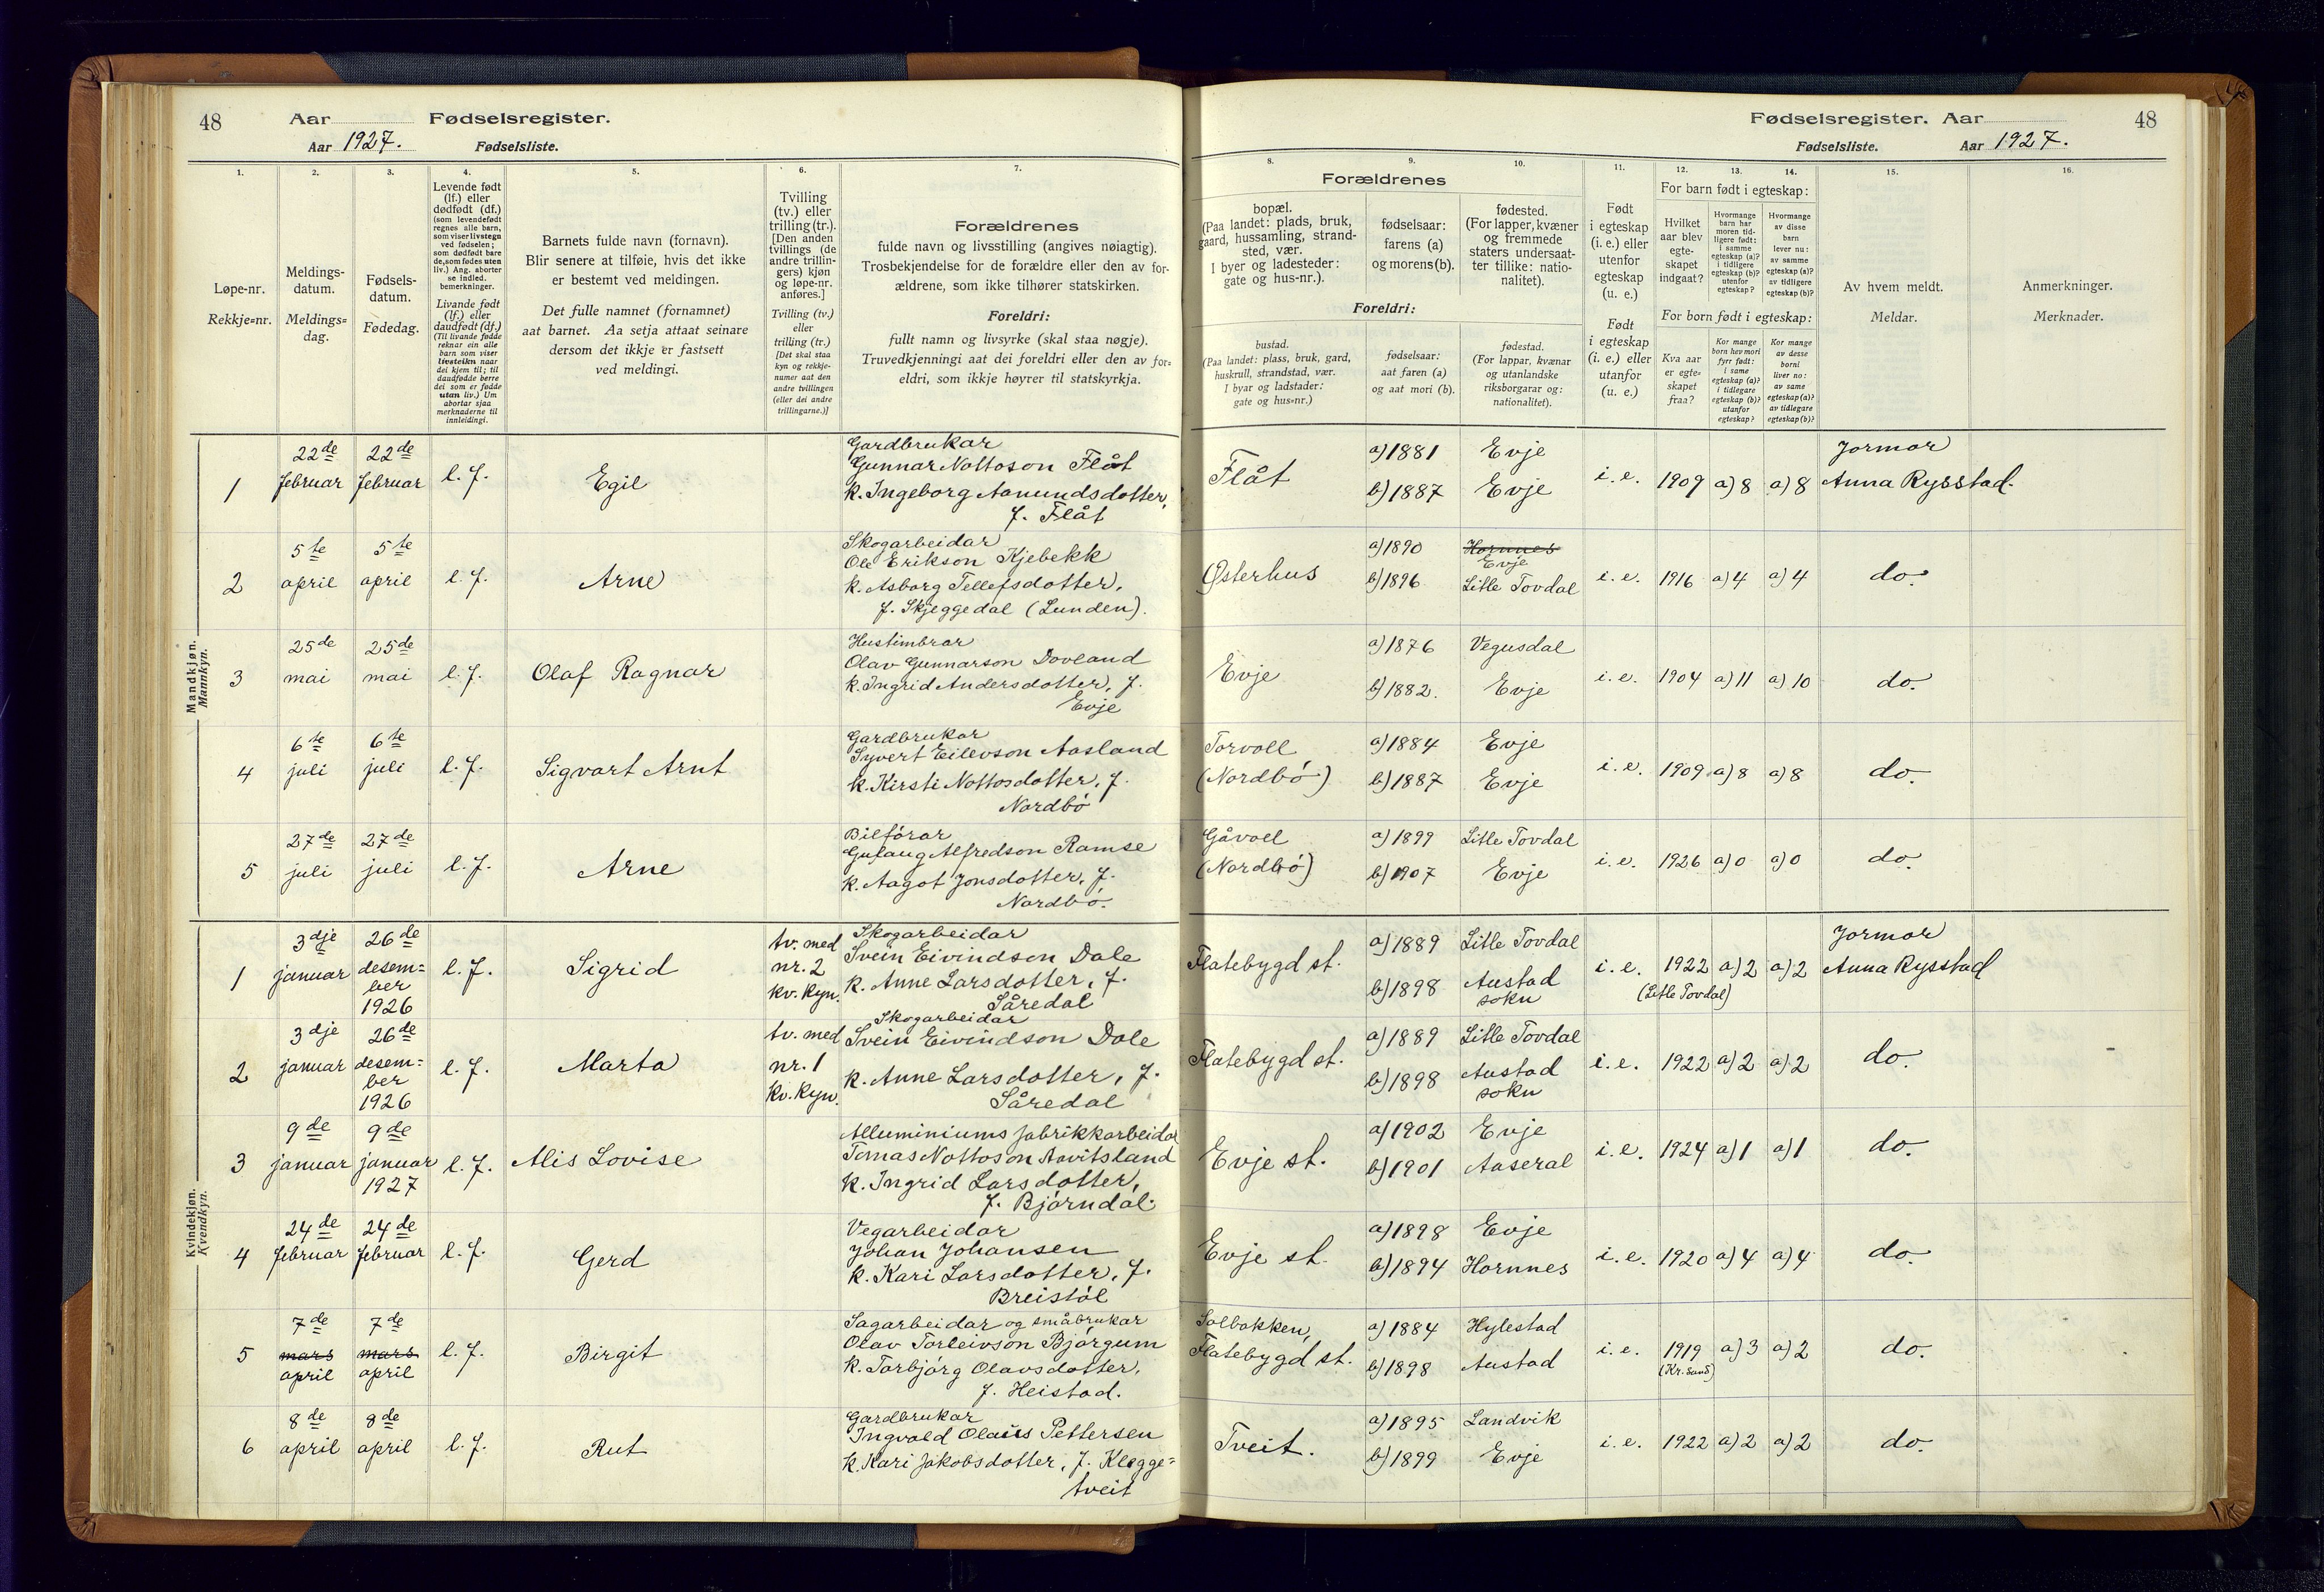 48 Aar Fødselsregister.
Aar 1927. Fødselsliste.
1. 2. 3. 4. 5. 6. 7.
Løpe-nr.
Rekkje=nr.
Meldings-
datum.
Meldings=
dag.
Fødsels-
datum.
Fødedag.
Levende født
(lf.) eller
dødfødt (df.)
(som levendefødt
regnes alle barn,
som viser livstegn
ved fødselen;
som dødfødt bare
de, som fødes uten
liv.) Ang. aborter
se indled.
bemerkninger.
Livande født
(lf.) eller
daudfødt (df.)
(Til livande fødde
reknar ein alle
barn som viser
livsteikn naar
dei kjem til; til
daudfødde berre
dei som er fødde
utan liv.) Um
abortar sjaa
merknaderne til
innleidingi.
Barnets fulde navn (fornavn).
Blir senere at tilføie, hvis det ikke
er bestemt ved meldingen.
Det fulle namnet (fornamnet)
aat barnet. Aa setja attaat seinare
dersom det ikkje er fastsett
ved meldingi.
Tvilling
(tv.) eller
trilling (tr.).
[Den anden
tvillings (de
andre trillin-
gers) kjøn
og løpe-nr.
anføres.]
Tvilling (tv.)
eller
trilling (tr.)
[Det skal staa
kyn og rekkje-
numer aat den
andre tvillingen
(eller dei andre
trillingarne.)]
Forældrenes
fulde navn og livsstilling (angives nøiagtig).
Trosbekjendelse for de forældre eller den av for-
ældrene, som ikke tilhører statskirken.
Foreldri:
fullt namn og livsyrke (skal staa nøgje).
Truvedkjenningi aat dei foreldri eller den av for-
eldri, som ikkje høyrer til statskyrkja.
Mandkjøn.
Mannkyn.
1 22de februar 22de februar l. f. Egil
Gardbrukar
Gunnar Nottoson Flåt
k. Ingeborg Aamundsdotter,
f. Flåt
2 5te april 5te april l. f. Arne
Skogarbeidar
Ole Erikson Kjebekk
k. Asborg Tellefsdotter,
f. Skjeggedal (Lunden).
3 25de mai 25de mai l. f. Olaf Ragnar
Hustimbrar
Olav Gunnarson Dovland
k. Ingrid Andersdotter, f.
Evje
4 6te juli 6te juli l. f. Sigvart Arnt
Gardbrukar
Syvert Eilevson Aasland
k. Kirsti Nottosdotter, f.
Nordbø
5 27de juli 27de juli l. f. Arne
Bilførar
Gulaug Alfredson Ramse
k. Aagot Jonsdotter, f.
Nordbø.
Kvindekjøn.
Kvendkyn.
1 3dje januar 26de desem=
ber
1926 l. f. Sigrid
tv. med
nr. 2
kv. kyn.
Skogarbeidar
Svein Eivindson Dale
k. Anne Larsdotter, f.
Såredal
2 3dje januar 26de desem=
ber
1926 l. f. Marta
tv. med
nr. 1
kv. kyn.
Skogarbeidar
Svein Eivindson Dale
k. Anne Larsdotter, f.
Såredal
3 9de januar 9de januar
1927 l. f. Alis Lovise
Alluminiums fabrikkarbeidar
Tomas Nottoson Aavitsland
k. Ingrid Larsdotter,
f. Bjørndal.
4 24de februar 24de februar l. f. Gerd
Vegarbeidar
Johan Johansen
k. Kari Larsdotter, f.
Breistøl
5 7de mars april 7de mars april l. f. Birgit
Sagarbeidar og småbrukar
Olav Torleivson Bjørgum
k. Torbjørg Olavsdotter,
f. Heistad.
6 8de april 8de april l. f. Rut
Gardbrukar
Ingvald Olaius Pettersen
k. Kari Jakobsdotter, f. Klegge=
tveit
Fødselsregister. Aar 48
Fødselsliste. Aar 1927.
8. 9. 10. 11. 12. 13. 14. 15. 16.
Forældrenes
bopæl.
(Paa landet: plads, bruk,
gaard, hussamling, strand-
sted, vær.
I byer og ladesteder:
gate og hus-nr.).
fødselsaar:
farens (a)
og morens (b).
fødested.
(For lapper, kvæner
og fremmede
staters undersaat-
ter tillike: natio-
nalitet).
Foreldri:
bustad.
(Paa landet: plass, bruk, gard,
huskrull, strandstad, vær.
I byar og ladstader:
gate og hus=nr.)
fødselsaar:
aat faren (a)
og aat mori (b).
fødestad.
(For lappar, kvænar
og utanlandske
riksborgarar og:
nationalitet).
Født
i egteskap
(i. e.) eller
utenfor
egteskap
(u. e.)
Født
i egteskap
(i. e.) eller
utanfor
(u. e.)
For barn født i egteskap:
Hvilket
aar blev
egte-
skapet
indgaat?
Hvormange
barn har
moren tid-
ligere født:
i samme
egteskap (a)?
i tidligere
egteskap (b)?
utenfor
egteskap?
Hvormange
av disse
barn
lever nu:
av samme
egteskap (a)?
av tidligere
egteskap (b)?
For born født i egteskap:
Kva aar
er egte-
skapet
fraa?
Kor mange
born hev mori
fyrr født:
i same
egteskap (a)?
i tidlegare
egteskap (b)?
utanfor
egteskap?
Kor mange
av desse
borni
liver no:
av same
egteskap (a)?
av tidlegare
egteskap (b)?
Av hvem meldt.
Meldar.
Anmerkninger.
Merknader.
Flåt a) 1881 Evje
b) 1887 Evje i. e. 1909 a) 8 a) 8 Jormor
Anna Rysstad.
Østerhus a) 1890 Hornnes
Evje
b) 1896 Litle Tovdal i. e. 1916 a) 4 a) 4 do.
Evje a) 1876 Vegusdal
b) 1882. Evje i. e. 1904 a) 11 a) 10 do.
Torvoll
(Nordbø) a) 1884 Evje
b) 1887 Evje i. e. 1909 a) 8 a) 8 do.
Gåvoll
(Nordbø) a) 1899 Litle Tovdal
b) 1907 Evje i. e. 1926 a) 0 a) 0 do.
Flatebygd st. a) 1889 Litle Tovdal
b) 1898 Austad
sokn i. e. 1922 a) 2 a) 2
(Litle Tovdal)
Jormor
Anna Rysstad
Flatebygd st. a) 1889 Litle Tovdal
b) 1898 Austad
sokn i. e. 1922 a) 2 a) 2 do.
Evje st. a) 1902 Evje
b) 1901 Aaseral i. e. 1924 a) 1 a) 1 do.
Evje st. a) 1898 Evje
b) 1894 Hornnes i. e. 1920 a) 4 a) 4 do.
Solbakken,
Flatebygd st. a) 1884 Hylestad
b) 1898 Austad i. e. 1919 a) 3 a) 2 do.
(Kr. sand)
Tveit. a) 1895 Landvik
b) 1899 Evje i. e. 1922 a) 2 a) 2 do.